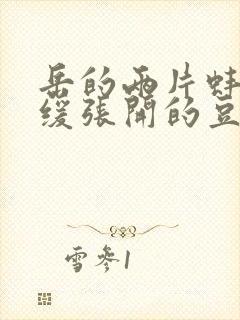 岳的两片蚌
缓张开的豆
雪参1